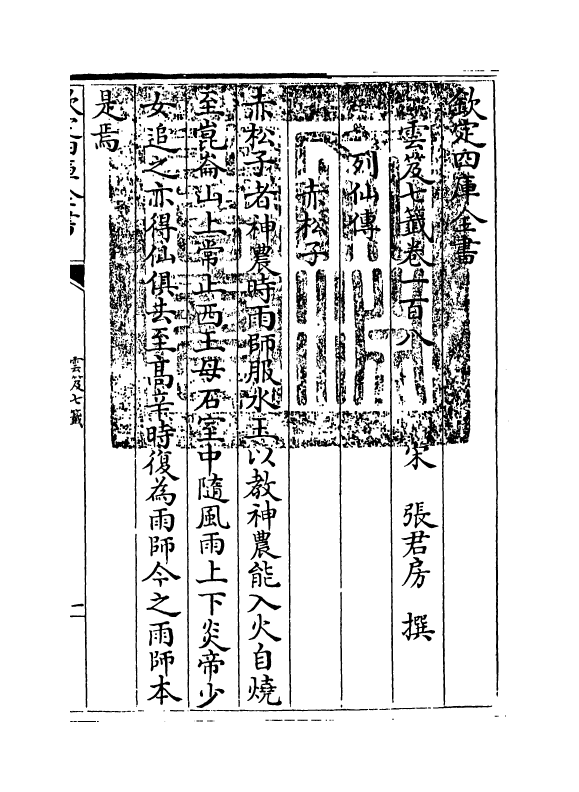 欽定四庫全書
雲笈七籤卷一百八
宋 張君房 撰
列仙傳
赤松子
赤松子者神農時雨師服水玉以教神農能入火自燒
至崑崙山上常止西王母石室中隨風雨上下炎帝少
女追之亦得仙俱去至高辛時復為雨師今之雨師本
是焉
欽定四庫全書
雲笈七籤